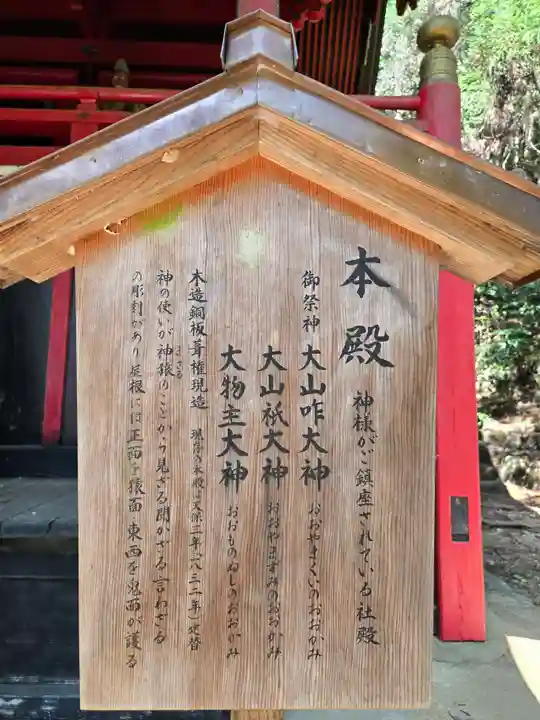 本殿 神様がご鎮座されている社殿
御祭神 大山咋大神 おおやまくいのおおかみ
大山祇大神 おおやまずみのおおかみ
大物主大神 おおものぬしのおおかみ
木造銅板葺権現造 現存の本殿は天保二年(一八三二年)建替
神の使いが神猿のことから見ざる聞かざる言わざる
まさる
の彫刻があり屋根には正面を猿面 東西を鬼面が護る